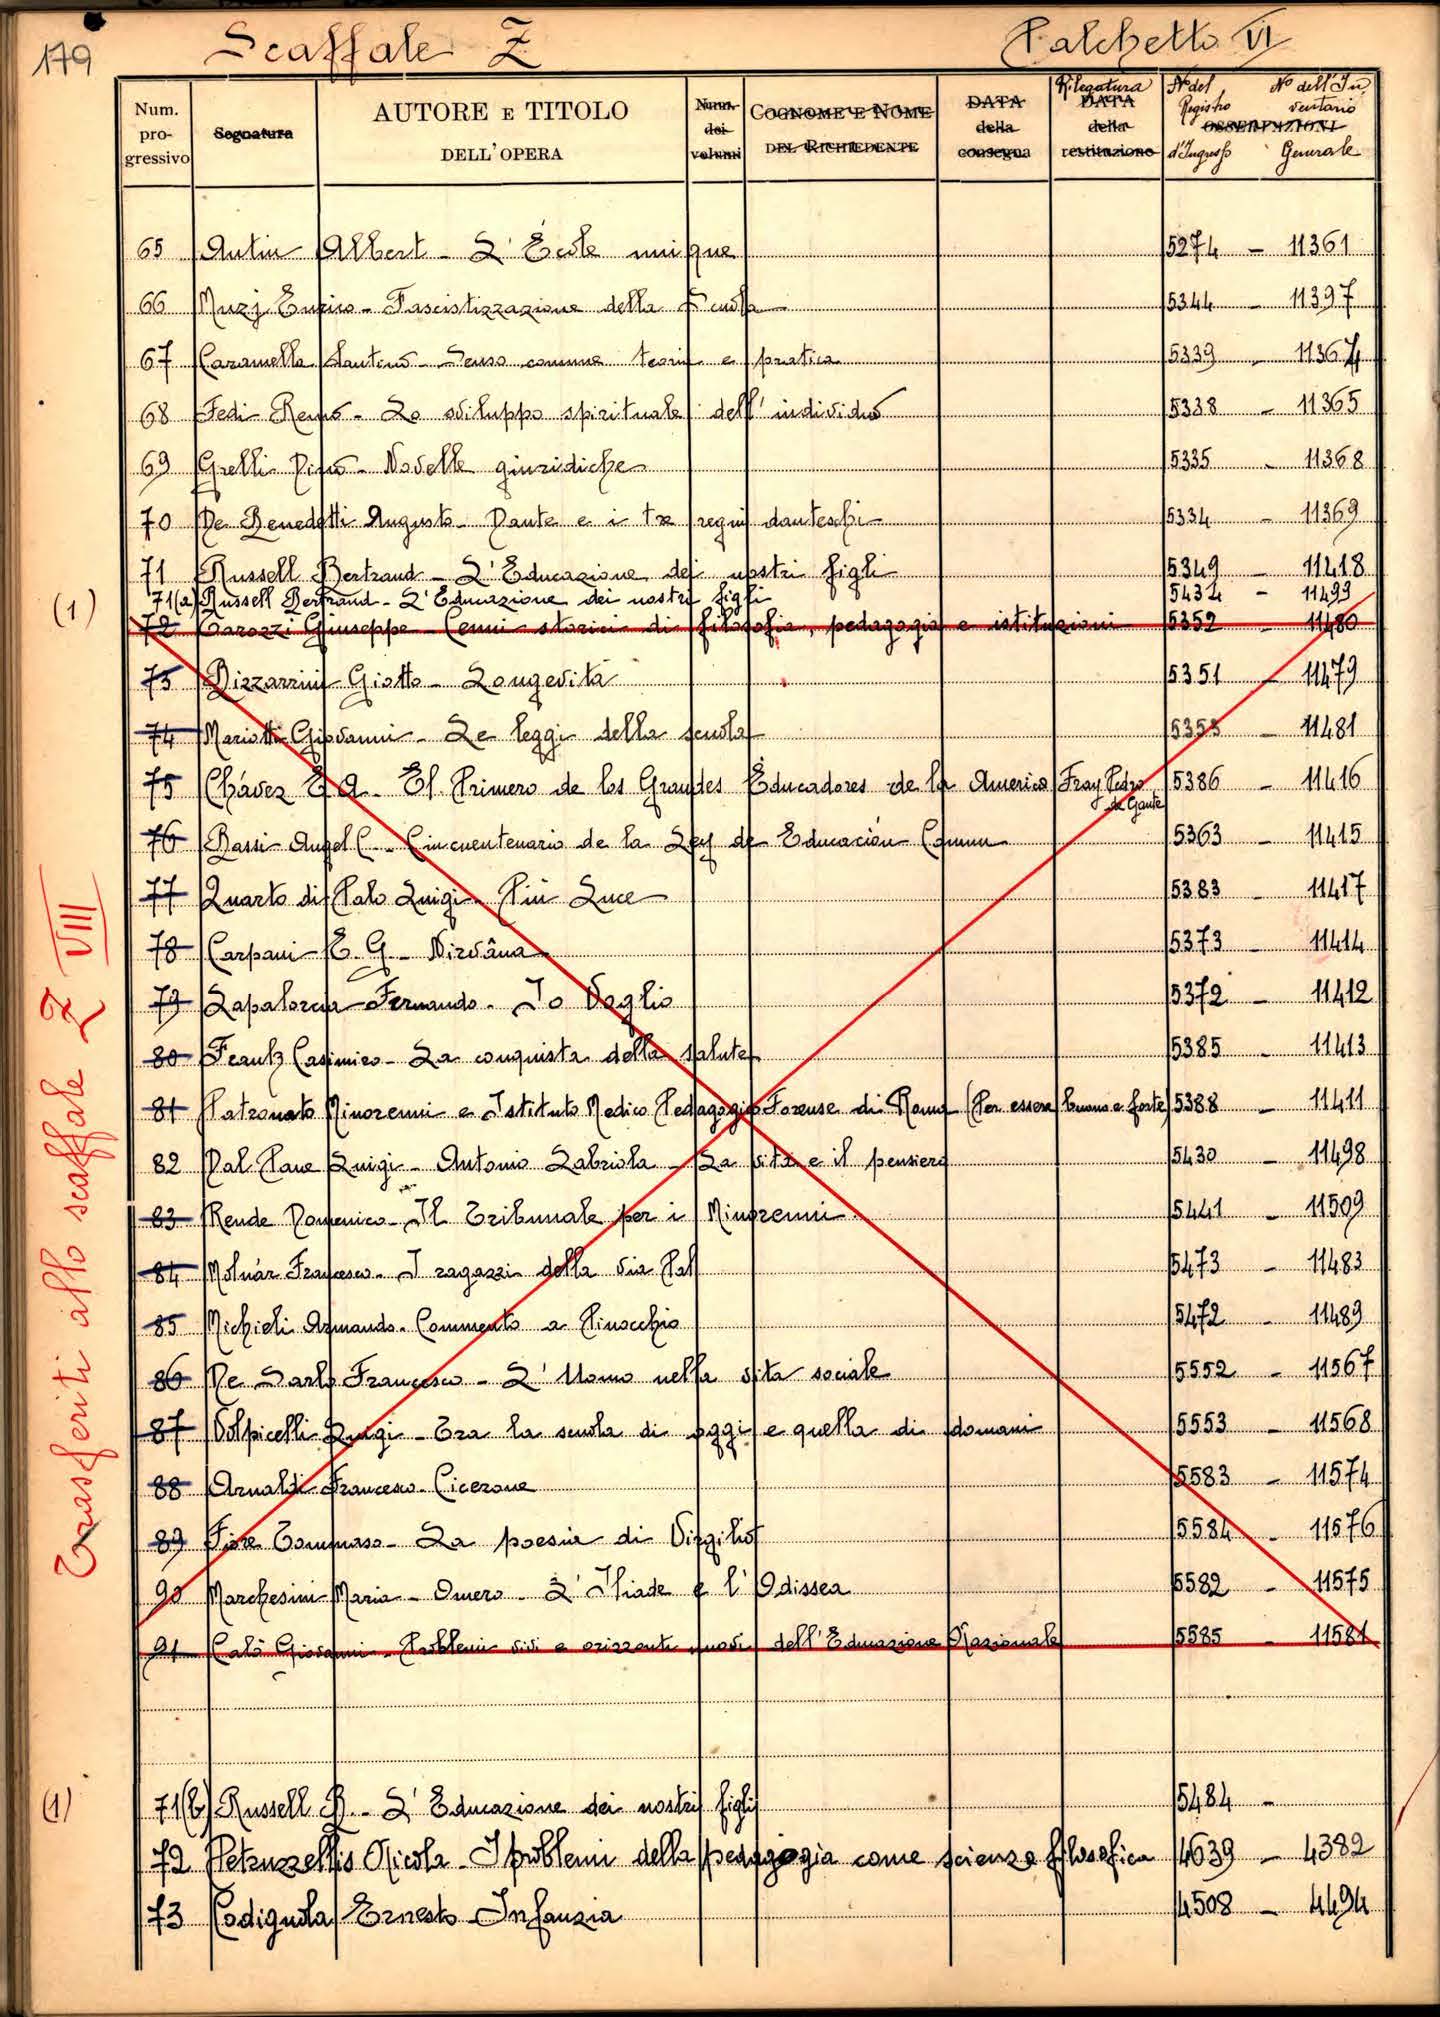 179 Scaffale Z Palchetto VI
Num. progressivo Segnatura AUTORE E TITOLO DELL'OPERA Num. dei volumi COGNOME E NOME DEL RICHIEDENTE DATA della consegna Rilegatura DATA della restituzione Nº del Registro d'Ingresso OSSERVAZIONI Nº dell'Inventario Generale
65 Autin Albert - L'École unique 5274 - 11361
66 Muzj Enrico - Fascistizzazione della Scuola 5344 - 11397
67 Caramella Santino - Senso comune teoria e pratica 5339 - 11367
68 Fedi Remo - Lo sviluppo spirituale dell'individuo 5338 - 11365
69 Grelli Dino - Novelle giuridiche 5335 - 11368
70 De Benedetti Augusto - Dante e i tre regni danteschi 5334 - 11369
71 Russell Bertrand - L'Educazione dei nostri figli 5349 - 11418
(1) 71(a) Russell Bertrand - L'Educazione dei nostri figli 5434 - 11493
72 Carozzi Giuseppe - Cenni storici di filosofia, pedagogia e istituzioni 5352 - 11480
73 Bizzarrini Giotto - Longevità 5351 - 11479
74 Mariotti Giovanni - Le leggi della scuola 5353 - 11481
75 Chávez E. A. - El Primero de los Grandes Educadores de la America Fray Pedro de Gante 5386 - 11416
76 Bassi Angel C. - Cincuentenario de la Ley de Educación Comun 5363 - 11415
77 Quarto di Palo Luigi - Più Luce 5383 - 11417
78 Carpani E. G. - Nirvâna 5373 - 11414
79 Lapalorcia Fernando - Io Voglio 5372 - 11412
80 Casimiro - La conquista della salute 5385 - 11413
81 Patronato Minorenni e Istituto Medico Pedagogico Forense di Roma (Per essere buono e forte) 5388 - 11411
82 Dal Pane Luigi - Antonio Labriola - La vita e il pensiero 5430 - 11498
83 Rende Domenico - Il Tribunale per i Minorenni. 5441 - 11509
84 Molnár Francesco - I ragazzi della via Pal 5473 - 11483
85 Michieli Armando - Commento a Pinocchio 5472 - 11489
86 De Sarlo Francesco - L'Uomo nella vita sociale 5552 - 11567
87 Volpicelli Luigi - Tra la scuola di oggi e quella di domani 5553 - 11568
88 Arnaldi Francesco - Cicerone 5583 - 11574
89 Fiore Tommaso - La poesia di Virgilio 5584 - 11576
90 Marchesini Maria - Omero - L'Iliade e l'Odissea 5582 - 11575
91 Calò Giovanni - Problemi vivi e orizzonti nuovi dell'Educazione Nazionale 5585 - 11581
Trasferiti allo scaffale Z VIII
(1) 71(b) Russell B. - L'Educazione dei nostri figli 5484 -
72 Petruzzellis Nicola - I problemi della pedagogia come scienza filosofica 4639 - 4382
73 Codignola Ernesto - Infanzia 4508 - 4494